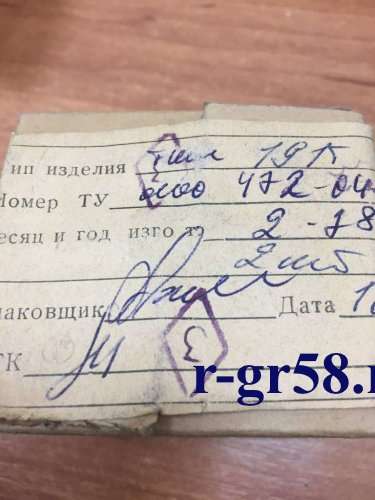 ип изделия тип 19П
Номер ТУ 0.400 472-04
есяц и год изго т. 2-78
2 шт
аковщик Дата 1
ТК
3
r-gr58.